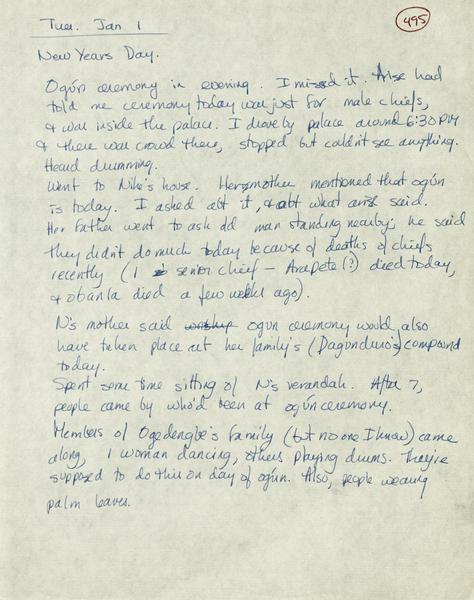 Tue. Jan 1
495
New Years Day.
Ogún ceremony in evening. I missed it. Arise had
told me ceremony today was just for male chiefs,
& was inside the palace. I drove by palace around 6:30 PM
& there was crowd there, stopped but couldn't see anything.
Heard drumming.
Went to Nike's house. Her mother mentioned that ogún
is today. I asked abt it, & abt what arise said.
Her father went to ask old man standing nearby; he said
they didn't do much today because of deaths of chiefs
recently (1 senior chief – Arapete(?) died today,
& obanla died a few weeks ago).
N's mother said worship ogún ceremony would also
have taken place at her family's (Dagunduro's) compound
today.
Spent some time sitting of N's verandah. After 7,
people came by who'd been at ogún ceremony.
Members of Ogedengbe's family (but no one I know) came
along, 1 woman dancing, others playing drums. They're
supposed to do this on day of ogún. Also, people wearing
palm leaves.